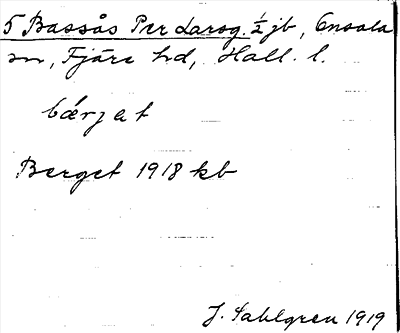 5 Bassås Per Larsg. ½ jb, Onsala
sn, Fjäre hd, Hall. l.
bǽrjet
Berget 1918 kb
J. Sahlgren 1919